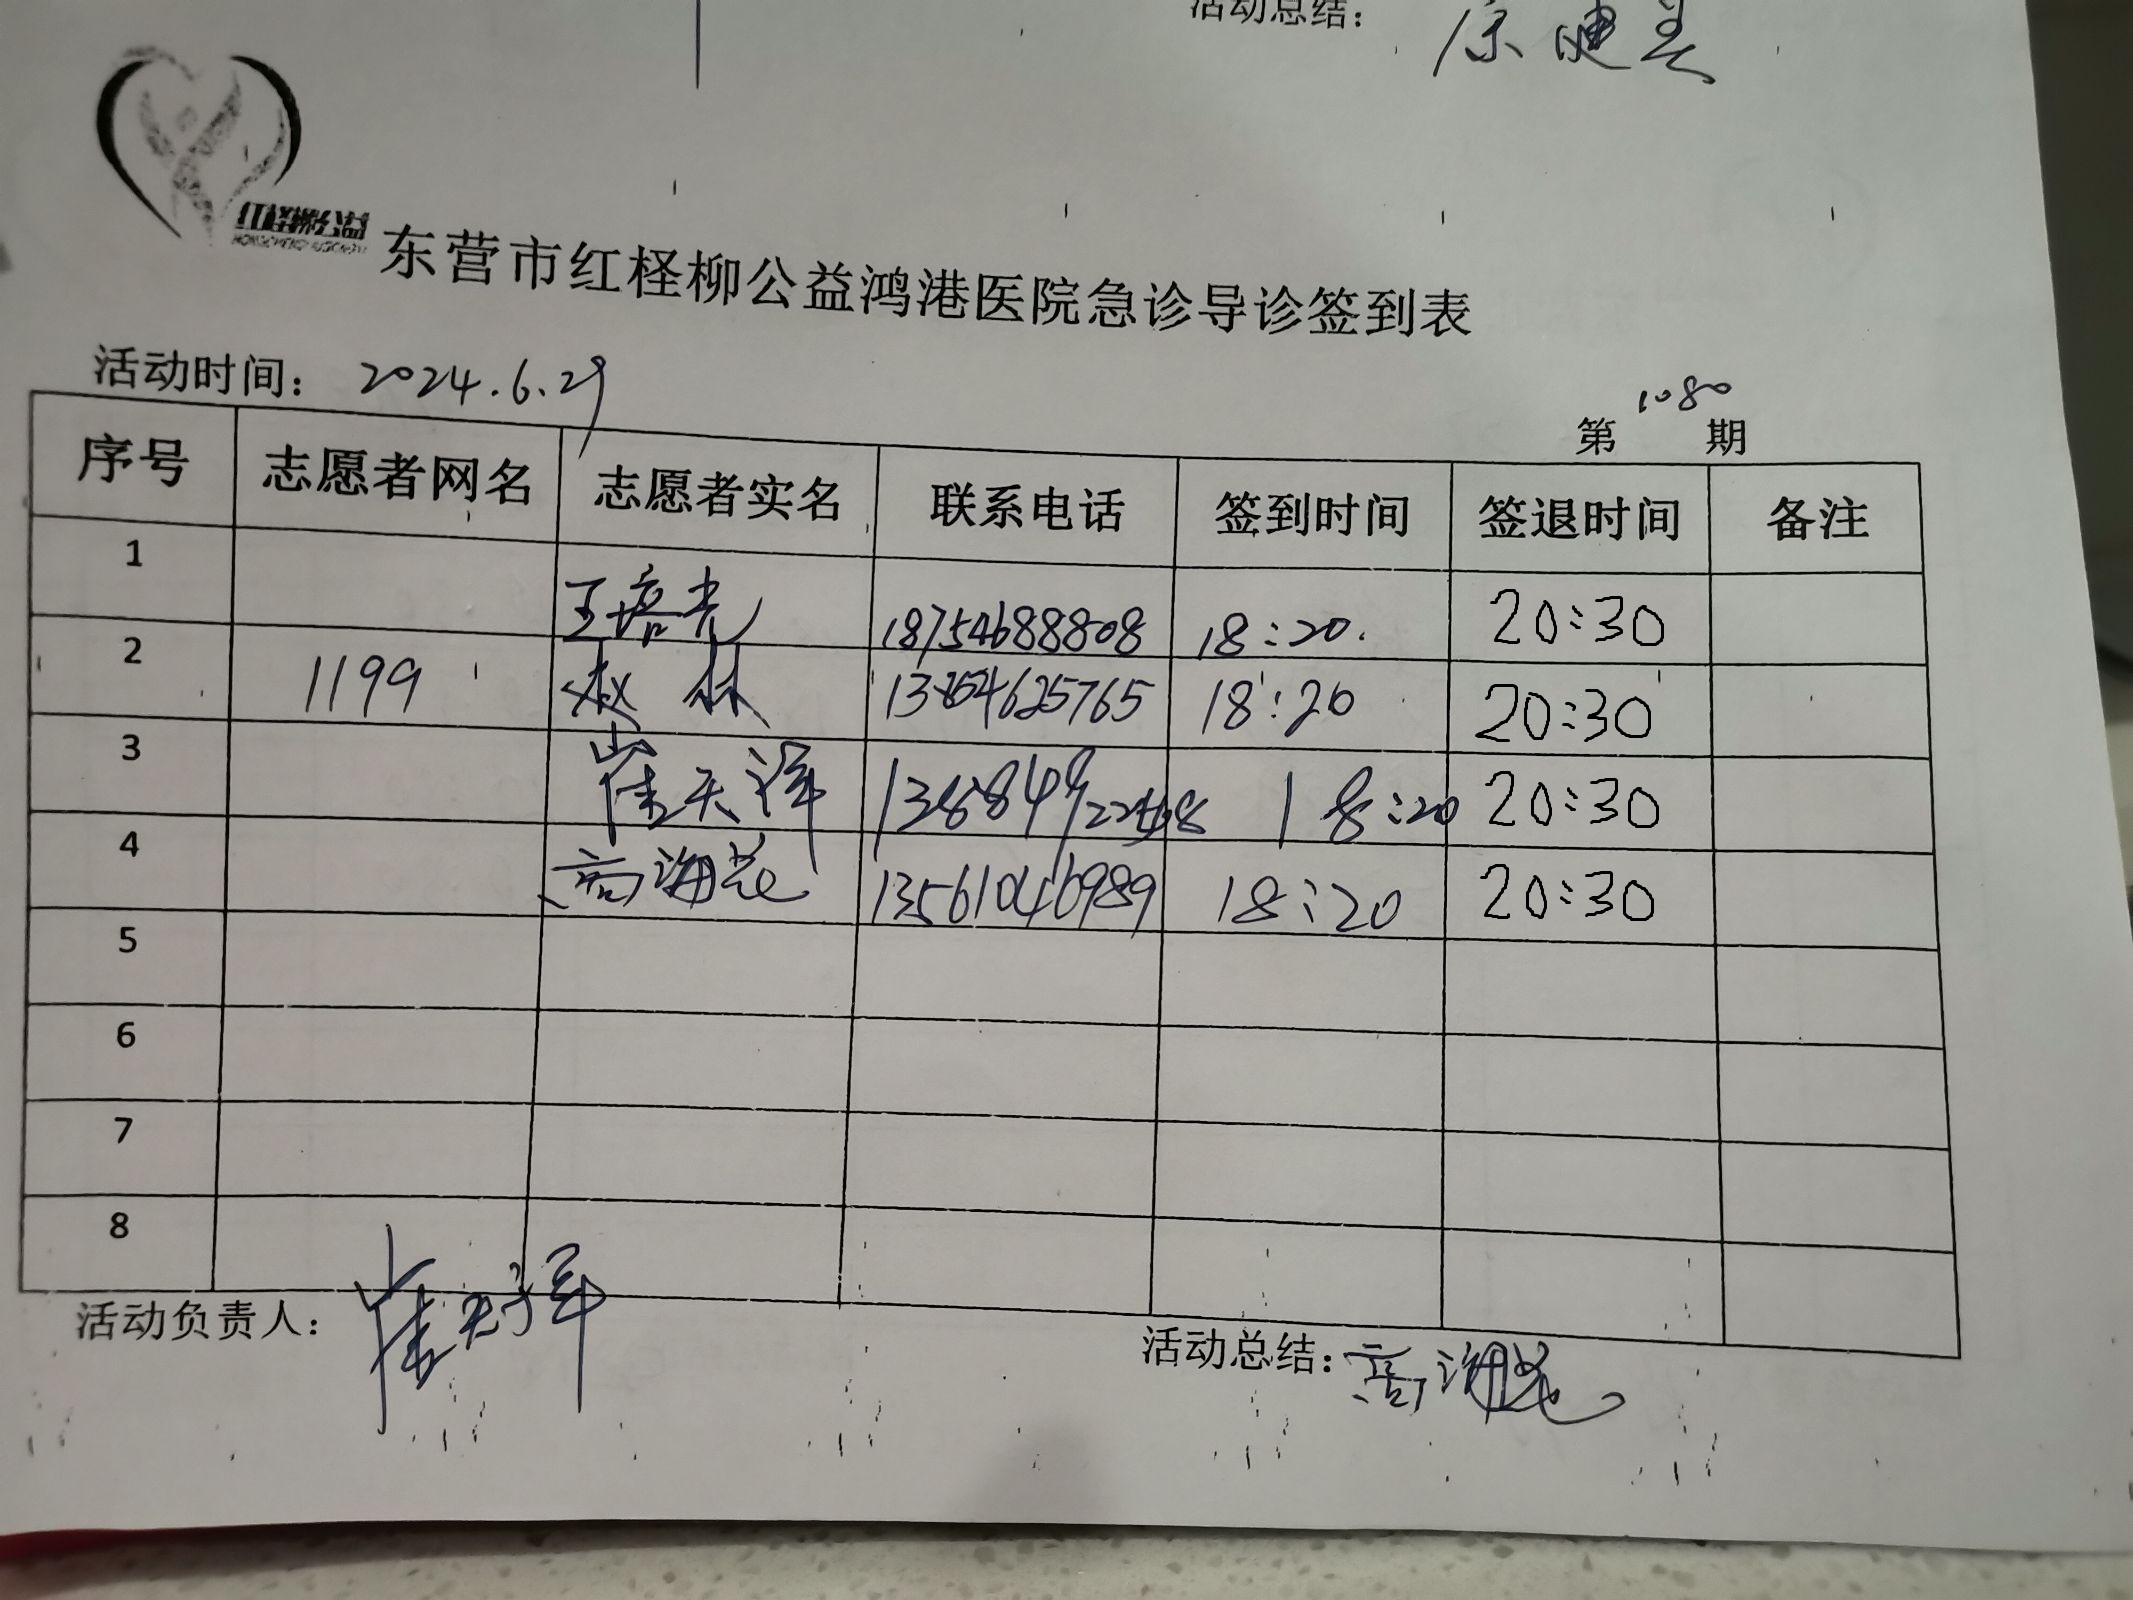 活动总结：
红柽柳公益
东营市红柽柳公益鸿港医院急诊导诊签到表
活动时间： 2024.6.29
第 1080 期
序号 志愿者网名 志愿者实名 联系电话 签到时间 签退时间 备注
1 王培光 18754688808 18:20. 20:30
2 1199 赵林 625765 18:20 20:30
3 崔天泽 18:20 20:30
4 高海花 13561046989 18:20 20:30
5
6
7
8
活动负责人： 崔天泽
活动总结： 高海花